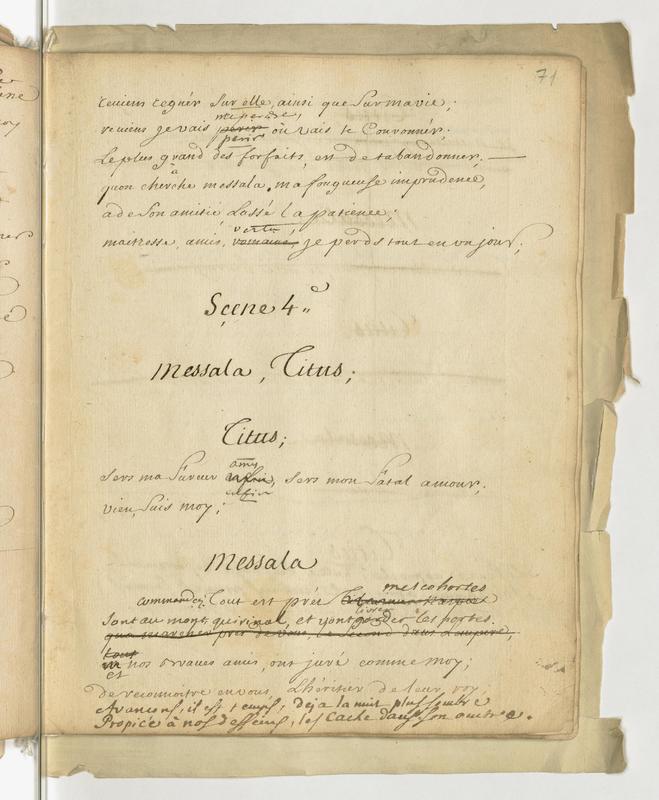 71
reviens regnér sur elle, ainsi que sur ma vie;
m'eperdre,
reviens je vais perir ou vais te Couronnér;
perir
Le plus grand des forfaits, est de t'abandonner.
quon cherche messala, ma fougueuse imprudence,
a de son amitié Lassé la patience;
vertu,
maitresse, amis, romains, je perds tout en un jour;
Scene 4e
Messala, Titus;
Titus;
amy
sers ma fureur enfin, sers mon fatal amour;
enfin
vien, suis moy;
Messala
mes cohortes
commandez; Tout est prést
livrer
sont au mont quirinal, et vont les portes.
que marcher prés de vous, le second dans l'empire,
tout
nos braves amis, ont juré comme moy;
et
de reconnoitre en vous, L'héritier de leur roy;
Avançons, il est temps, déja la nuit plus sombre
Propice à nos desseins, les cache dans son ombre.